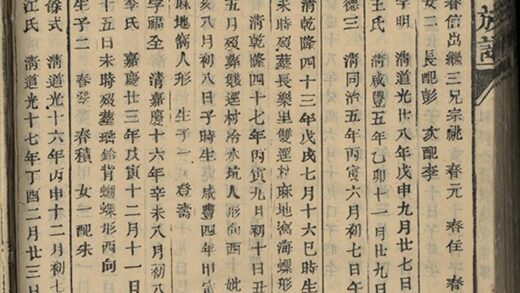 族譜
春信出繼三兄宗祧 春元 春任 春
女二 長配彭子 次配李
李明 清道光廿八年戊申九月廿七日
王氏 清咸豐五年乙卯十一月廿九日
德三 清同治五年丙寅六月初七日
清乾隆四十三年戊戌七月十六巳時生
五月歿葬長樂里雙逕村麻地窩海螺形
清乾隆四十七年丙寅九月初十日丑
五月歿葬逕村冷水坑人形向西 妣
亥八月初八日子時生 咸豐四年甲寅
麻地窩人形 生子一 發濤
學福全 清嘉慶十六年辛未八月初
李氏 嘉慶廿三年戊寅十二月十一日
十五日未時歿葬背蝴蝶形西向
生子二 春發 春積 女一配朱
俊式 清道光十六年丙申十二月初七
江氏 清道光十七年丁酉二月廿三日